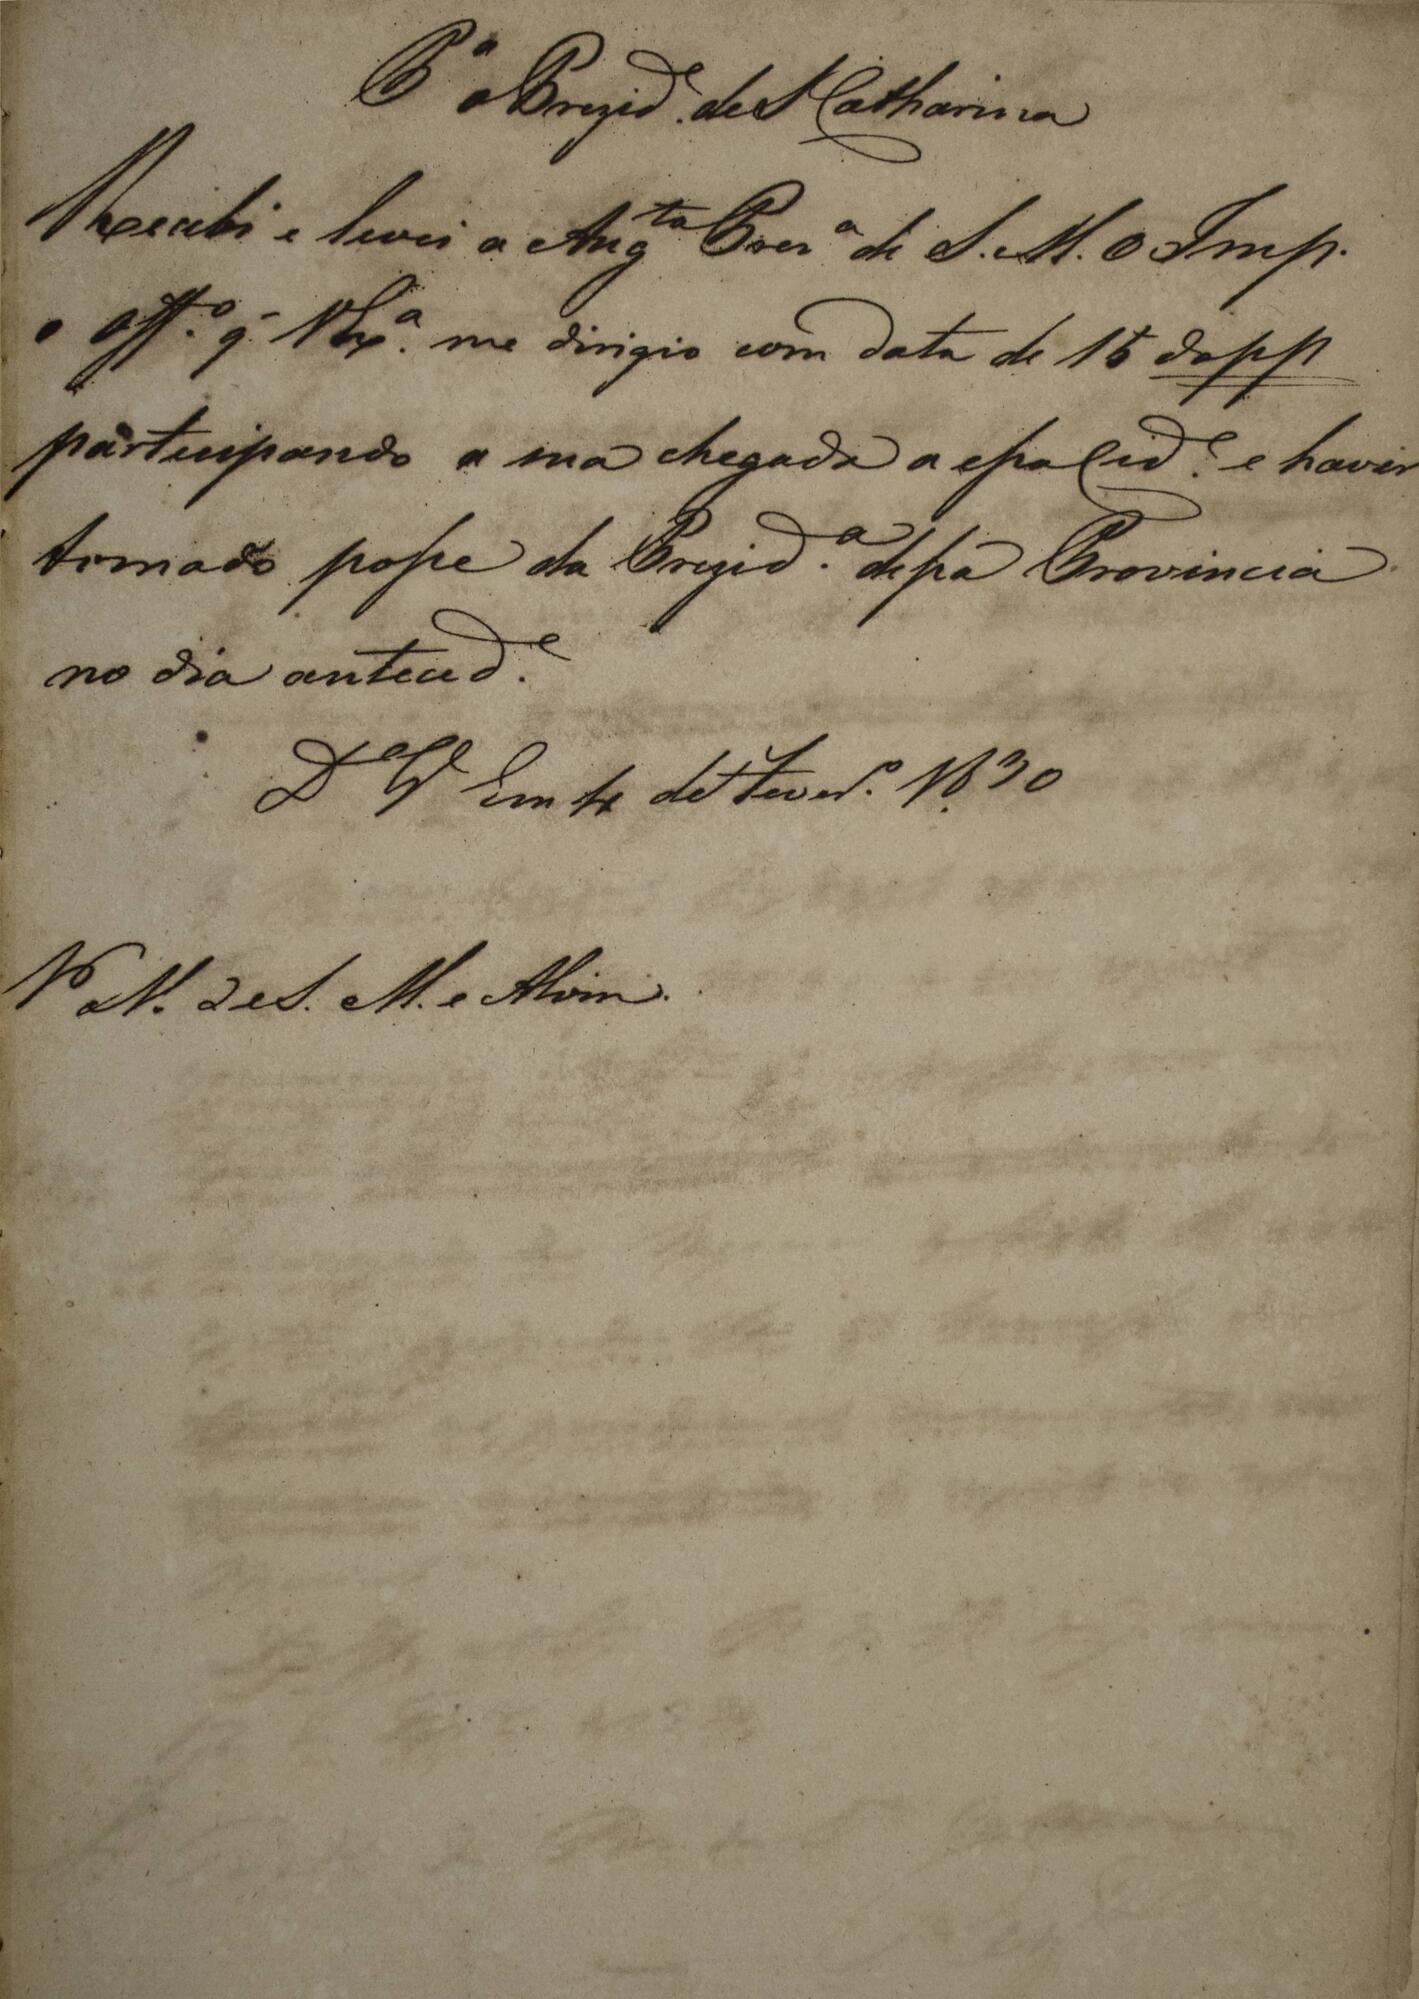 P.ª o Prezid.e de S Catharina
Recebi e levei a Aug.ta Prez.ª de S. M. O Imp.
o off.º q̃ V Ex.ª me dirigio com data de 15 do pp
participando a sua chegada a essa Cid.e e haver
tomado posse da Prezid.ª dessa Provincia
no dia anteced.e
D.s G.e Em 4 de Fever.º 1830
M. de S. M. e Alvim.